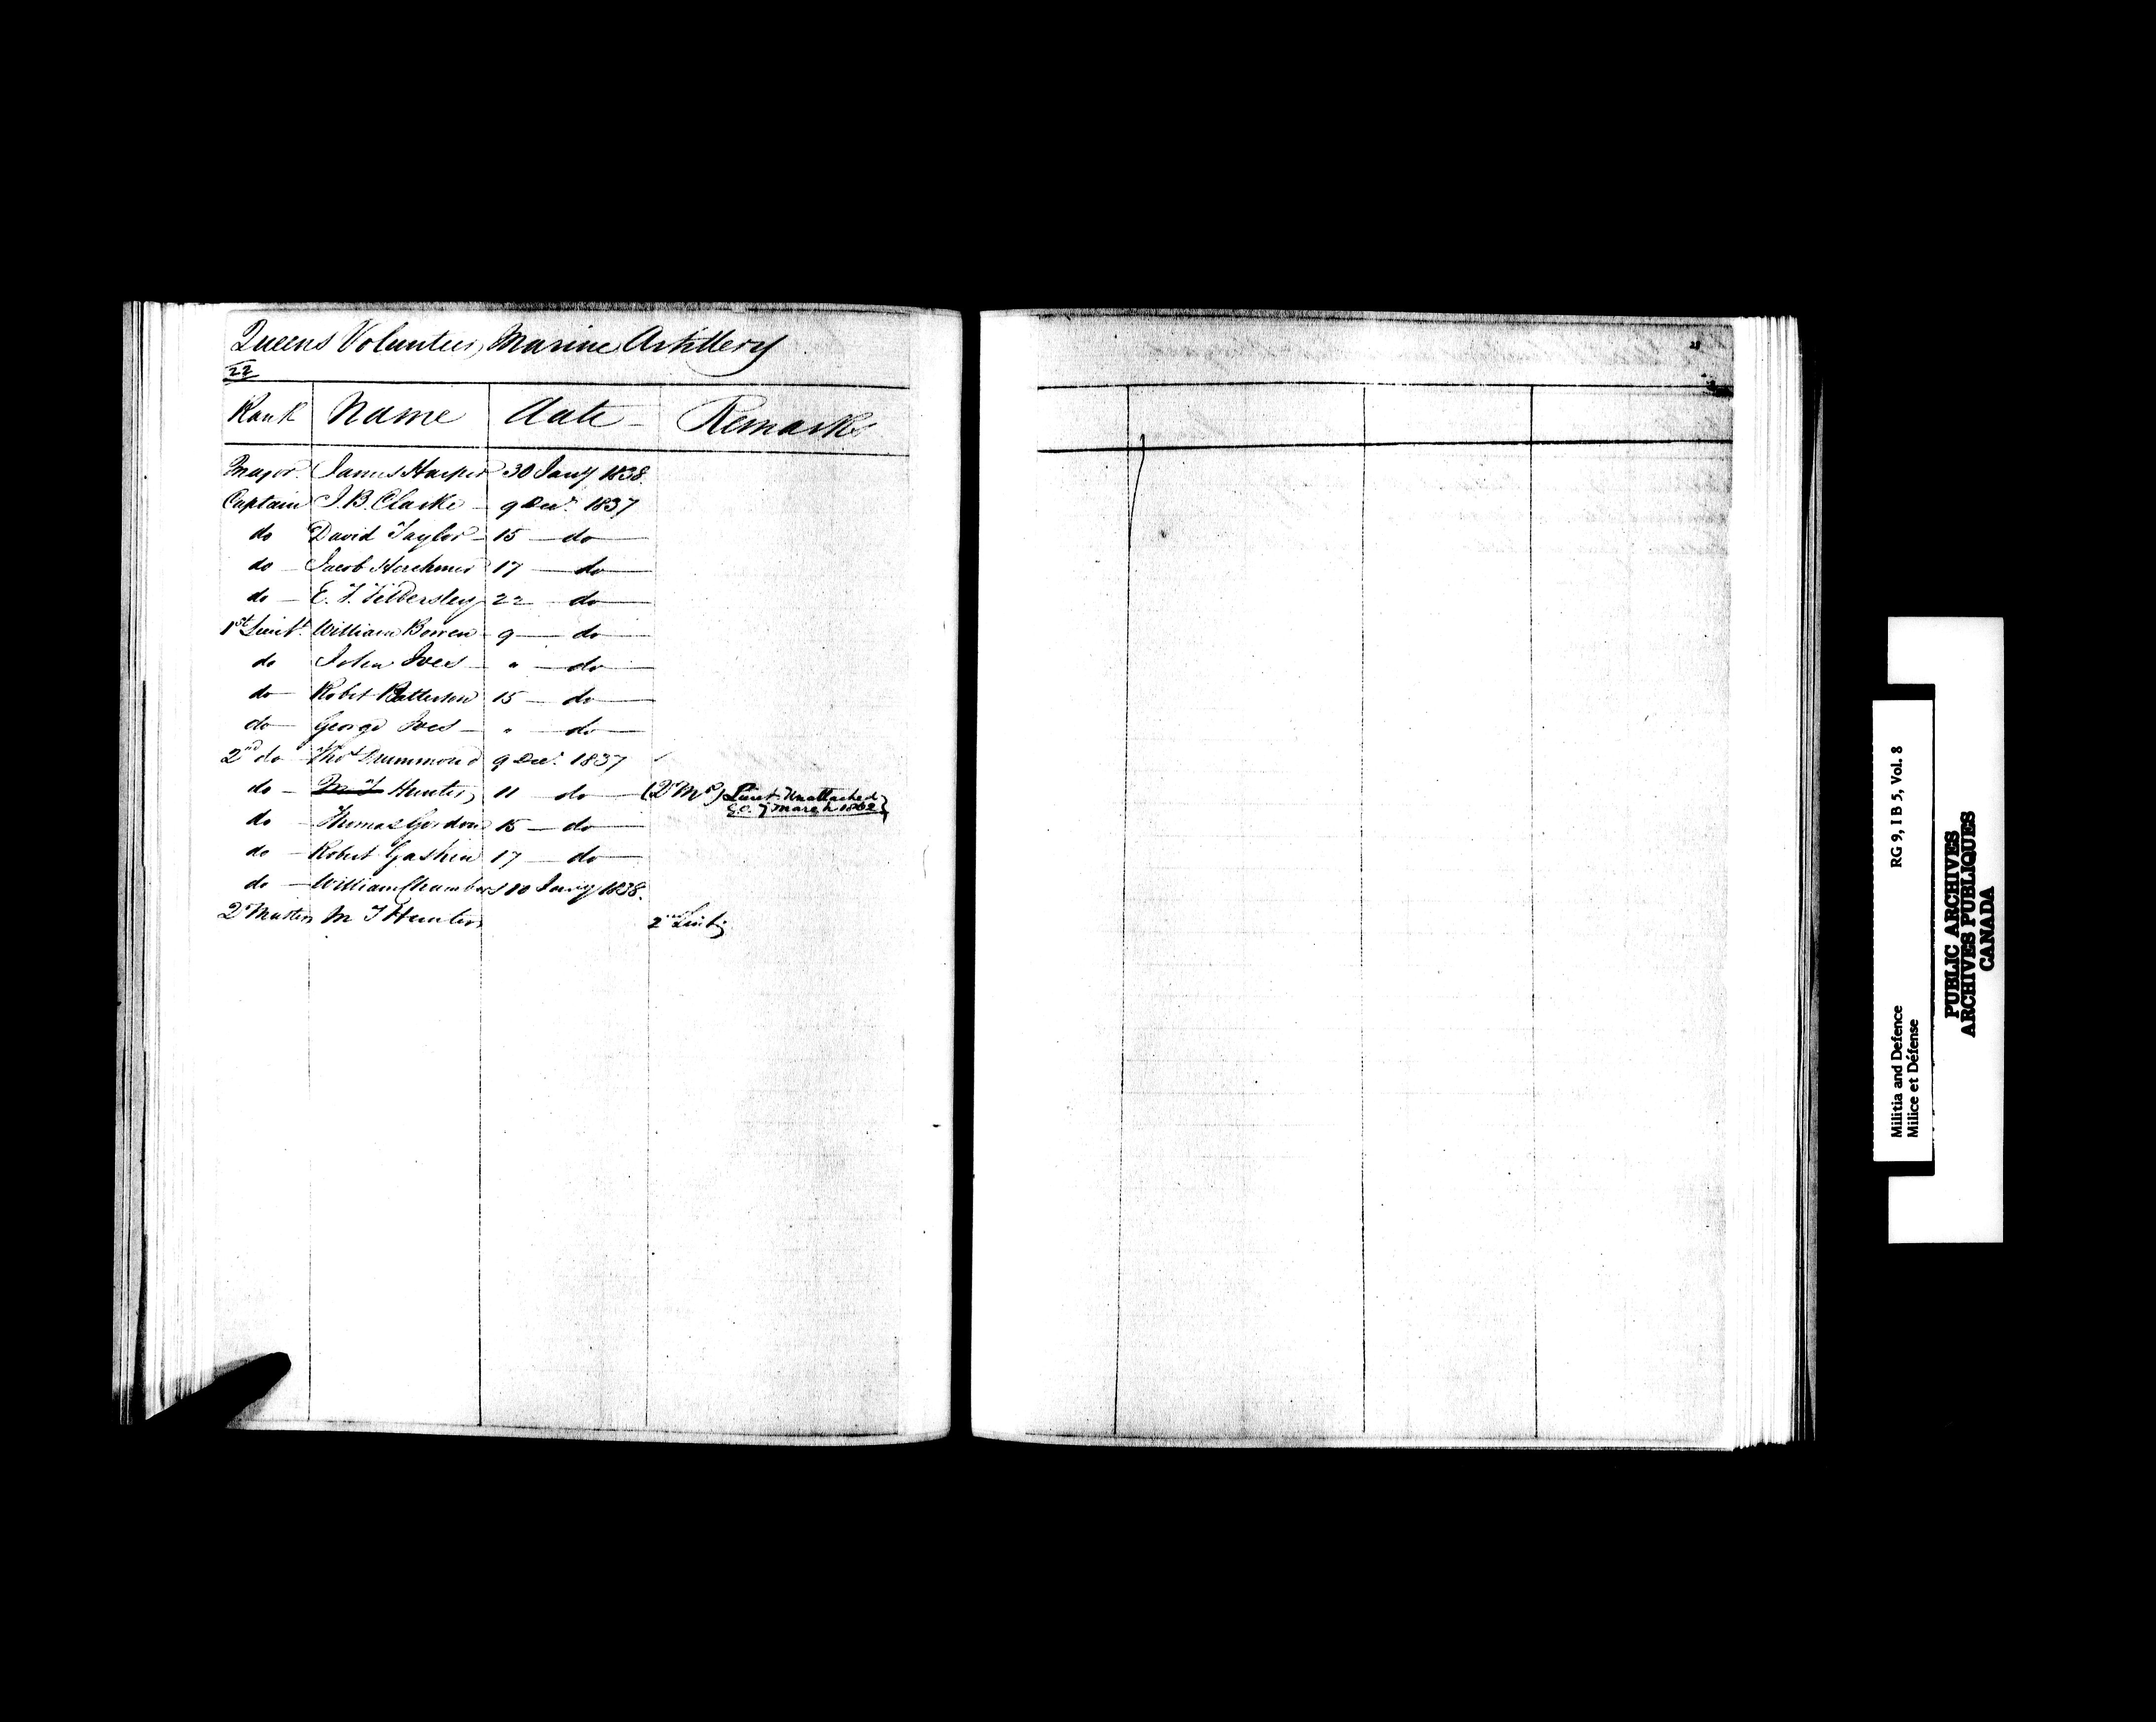 Queens Volunteer Marine Artillery
22
Rank Name date Remarks
Major James Harper 30 Jany 1838.
Captain J. B. Clarke 9 Decr 1837
do David Taylor 15 do
do Jacob Herchmer 17 do
do E. T. Tildersley 22 do
1st Lieut. William Bowen 9 do
do John Ives " do
do Robt Patterson 15 do
do George Ives " do
2nd do Thos Drummond 9 Decr 1837
do M T Hunter 11 do (Qr Mr) Lieut. Unattached
G.O. 7 March 1862
do Thomas Gordon 15 do
do Robert Gaskin 17 do
do William Chambers 10 Jany 1838.
Qr Master M T Hunter 2nd Lieut.
Militia and Defence RG 9, I B 5, Vol. 8
Milice et Défense
PUBLIC ARCHIVES
ARCHIVES PUBLIQUES
CANADA